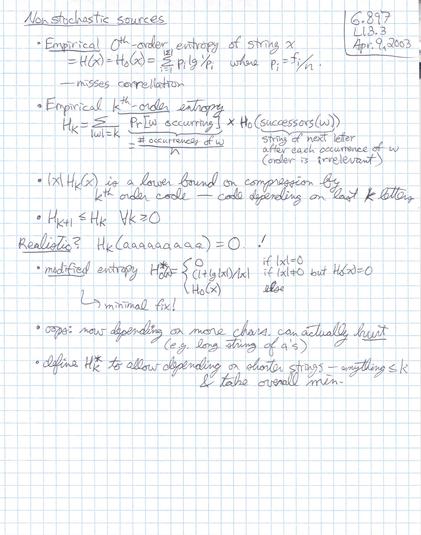 6.897
L13.3
Apr. 9, 2003
Nonstochastic sources
• Empirical 0th-order entropy of string x
= H(x) = H₀(x) = Σ_{i=1}^{|Σ|} pᵢ lg 1/pᵢ where pᵢ = fᵢ/n.
— misses correlation
• Empirical kth-order entropy
H_k = Σ_{|w|=k} Pr[w occurring] × H₀(successors(w))
= # occurrences of w / n
string of next letter
after each occurrence of w
(order is irrelevant)
• |x| H_k(x) is a lower bound on compression by
kth order code — code depending on last k letters
• H_{k+1} ≤ H_k ∀k ≥ 0
Realistic? H_k(aaaaaaaaa) = 0 !
• modified entropy H₀* = { 0 if |x|=0
(1+lg|x|)/|x| if |x|≠0 but H₀(x)=0
H₀(x) else
↳ minimal fix!
• oops: now depending on more chars. can actually hurt
(e.g. long string of a's)
• define H_k* to allow depending on shorter strings — anything ≤ k
& take overall min.